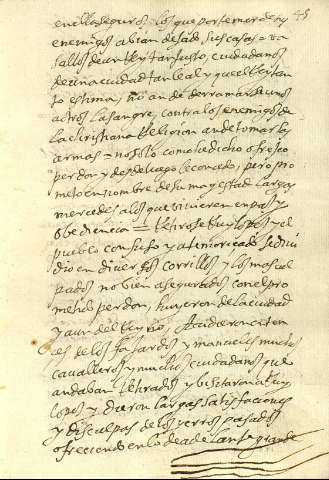 48
en ellos seguros los que por temor de sus
enemigos abian dejado sus casas = va
sallos de un Rey tan justo, ciudadanos
de una ciudad tan leal y que el Rey tan
to estima, no an de derramar de unos
a otros la sangre, contra los enemigos de
la christiana Religion an de tomar las
armas = no solo como e dicho ofresco
perdon y desde luego le conçedo, pero pro
meto en nombre de su magestad largas
mercedes a los que vivieren en paz y
obediençia = Retirose Ruy lopes y el
pueblo confuso y atemoriçado se divi
dio en diversos corrillos y los mas cul
pados no bien asegurados con el pro
metido perdon, huyeron de la ciudad
y aun del Reyno, Acudieron caten
de los fajardos y manueles muchos
cavalleros y muchos ciudadanos que
andaban Retirados y visitaron a Ruy
lopes y dieron largas satisfaciones
y disculpas de los yerros pasados
ofreciendo en lo de adelante grande